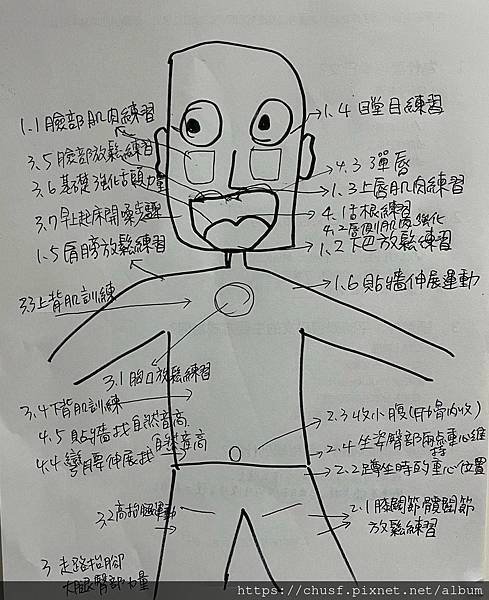 1.1臉部肌肉練習
1.4 瞠目練習
3.5臉部放鬆練習
4.3 彈唇
3.6基礎強化舌頭力量
1.3上唇肌肉練習
3.7早起床開嗓步驟
4.1舌根練習
4.2唇側肌肉強化
1.5肩膀放鬆練習
1.2下巴放鬆練習
1.6貼牆伸展運動
3.3上背肌訓練
3.1胸口放鬆練習
3.4下背肌訓練
4.5貼牆找自然音高
2.3收小腹(肋骨內收)
4.4彎腰伸展找自然音高
2.4坐姿臀部兩點重心維持
2.2蹲坐時的重心位置
3.2高抬腿運動
2.1膝關節髖關節
放鬆練習
3 走路抬腳
大腿臀部力量
https://chusf.pixnet.net/album